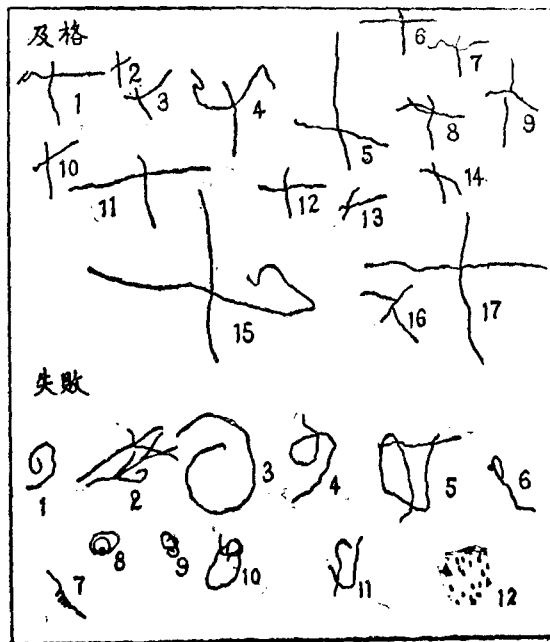 及格
1 2 3 4 5 6 7 8 9
10 11 12 13 14
15 16 17
失敗
1 2 3 4 5 6
7 8 9 10 11 12